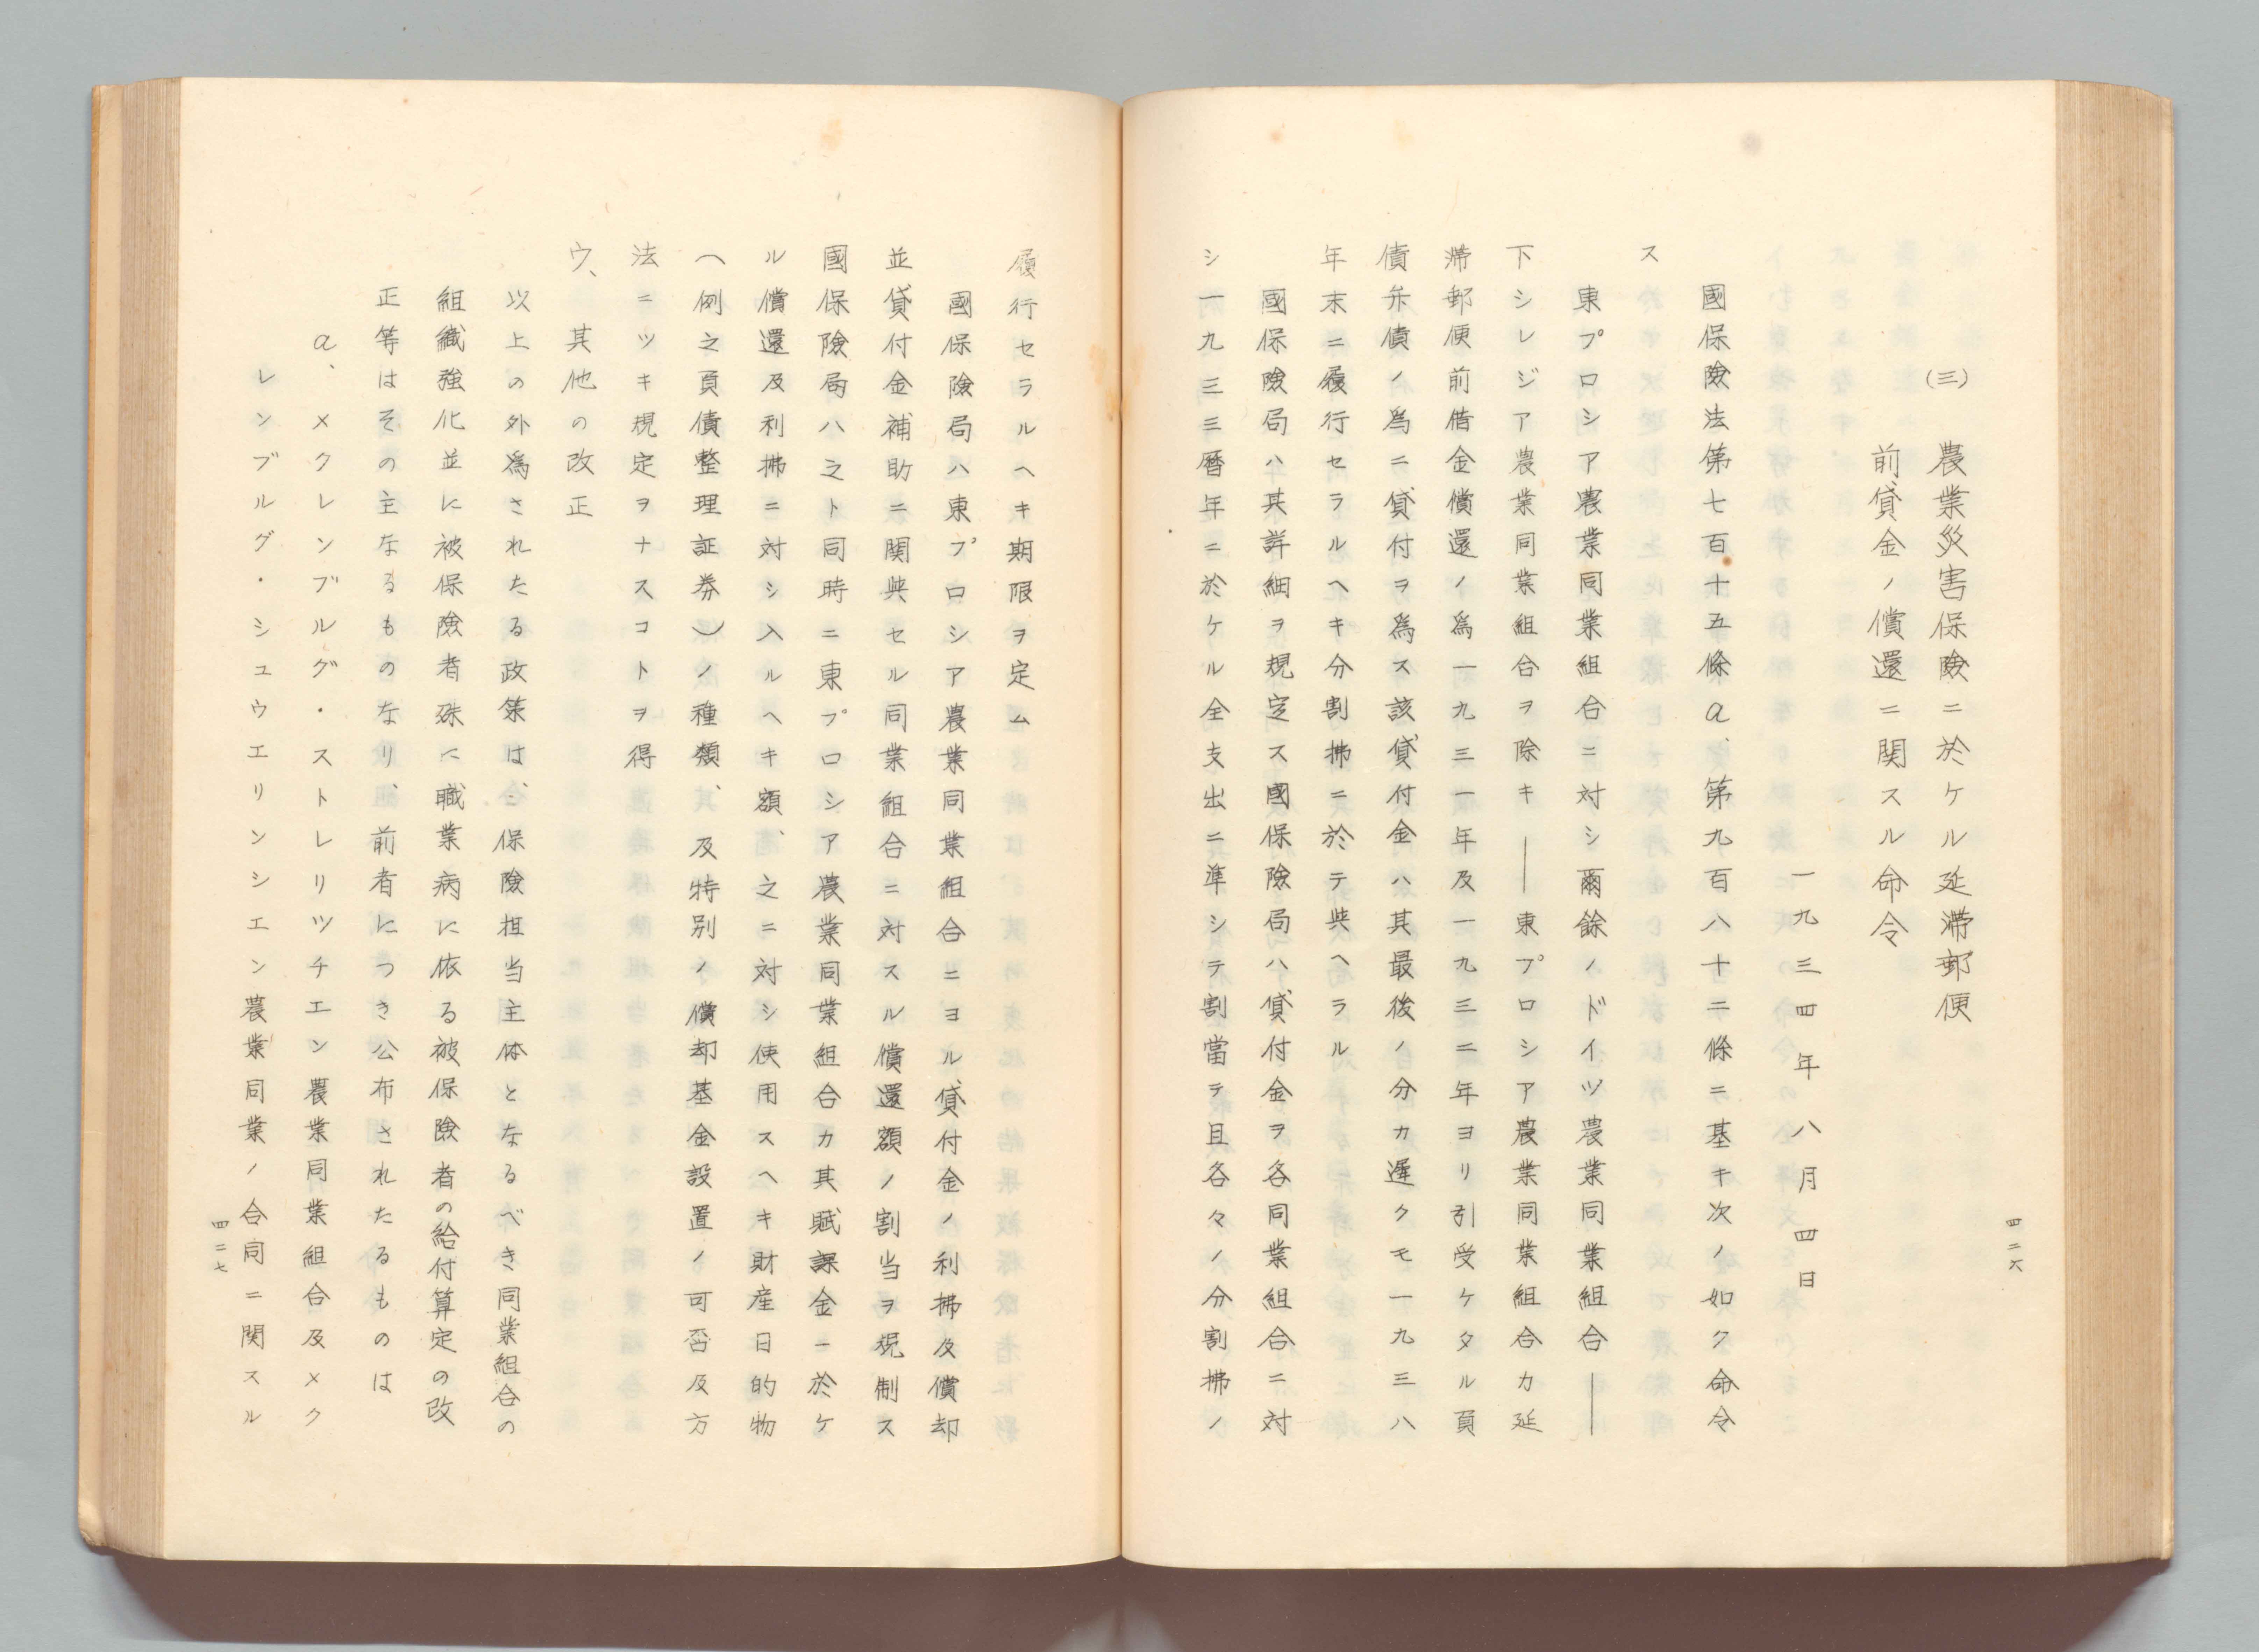 四二六
(三) 農業災害保險ニ於ケル延滯郵便
前貸金ノ償還ニ関スル命令
一九三四年八月四日
國保險法第七百十五條a、第九百八十二條ニ基キ次ノ如ク命令
ス
東プロシア農業同業組合ニ対シ爾餘ノドイツ農業同業組合——
下シレジア農業同業組合ヲ除キ——東プロシア農業同業組合カ延
滯郵便前借金償還ノ爲一九三一年及一九三二年ヨリ引受ケタル負
債弁債ノ爲ニ貸付ヲ爲ス該貸付金ハ其最後ノ分カ遲クモ一九三八
年末ニ履行セラルヘキ分割拂ニ於テ与ヘラル
國保險局ハ其詳細ヲ規定ス國保險局ハ貸付金ヲ各同業組合ニ対
シ一九三三暦年ニ於ケル全支出ニ準シテ割當テ且各々ノ分割拂ノ
履行セラルヘキ期限ヲ定ム
國保險局ハ東プロシア農業同業組合ニヨル貸付金ノ利拂及償却
並貸付金補助ニ関与セル同業組合ニ対スル償還額ノ割当ヲ規制ス
國保險局ハ之ト同時ニ東プロシア農業同業組合カ其賦課金ニ於ケ
ル償還及利拂ニ対シ入ルヘキ額、之ニ対シ使用スヘキ財産目的物
(例之負債整理証券)ノ種類、及特別ノ償却基金設置ノ可否及方
法ニツキ規定ヲナスコトヲ得
ウ、其他の改正
以上の外爲されたる政策は、保險担当主体となるべき同業組合の
組織強化並に被保險者殊に職業病に依る被保險者の給付算定の改
正等はその主なるものなり、前者につき公布されたるものは
a、メクレンブルグ・ストレリツチエン農業同業組合及メク
レンブルグ・シュウエリンシエン農業同業ノ合同ニ関スル
四二七